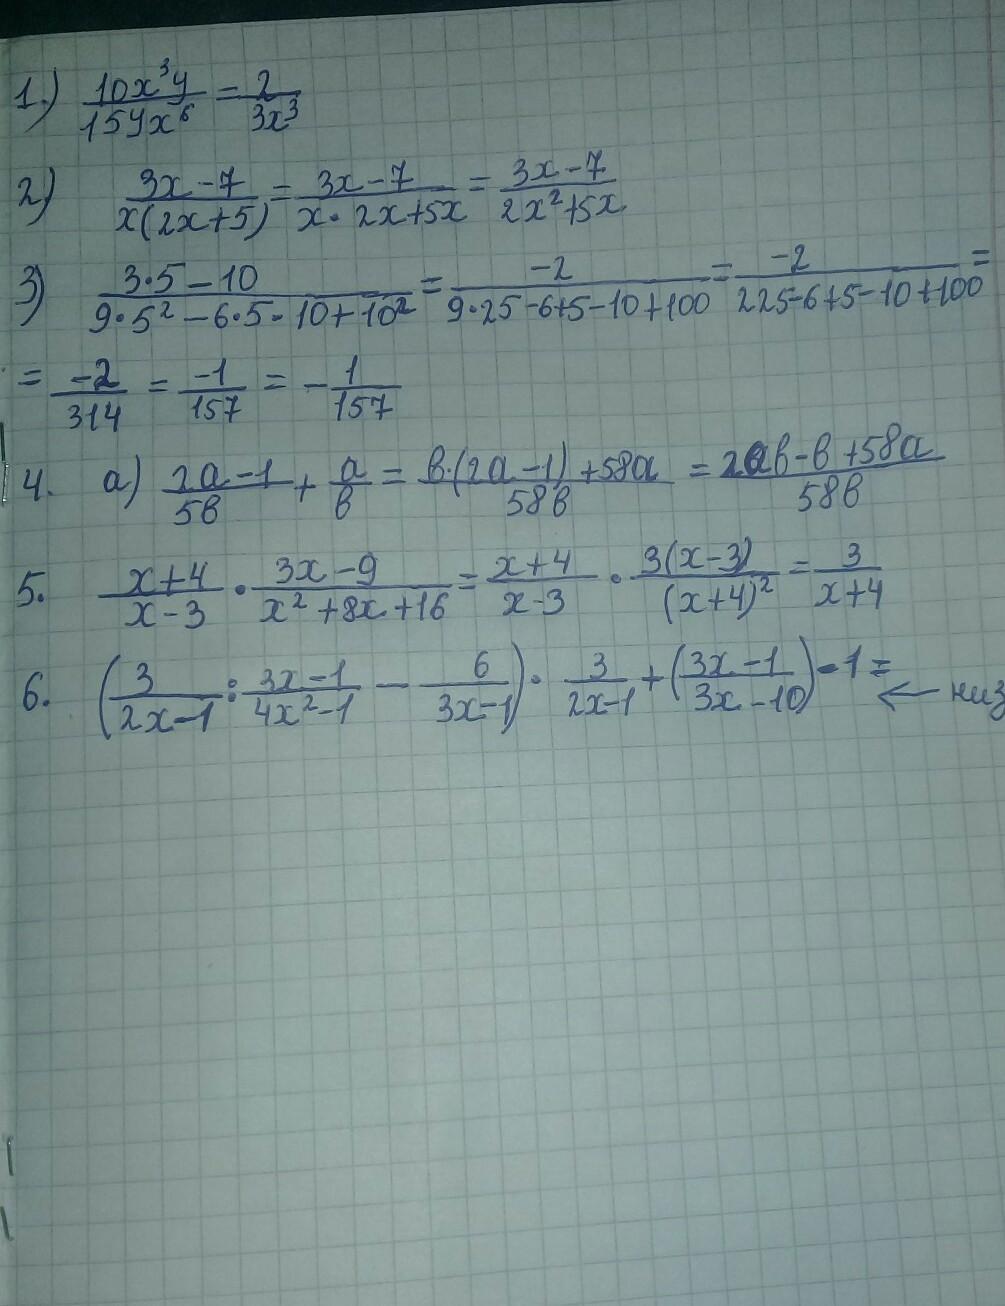 1.) 10x³y/15yx⁶ = 2/3x³
2) 3x-7/x(2x+5) = 3x-7/x·2x+5x = 3x-7/2x²+5x
3) 3·5-10/9·5²-6·5·10+10² = -2/9·25-6+5-10+100 = -2/225-6+5-10+100 =
= -2/314 = -1/157 = -1/157
4. a) 2a-1/5в + a/в = в·(2a-1)+58a/58в = 2aв-в+58a/58в
5. x+4/x-3 · 3x-9/x²+8x+16 = x+4/x-3 · 3(x-3)/(x+4)² = 3/x+4
6. (3/2x-1 : 3x-1/4x²-1 - 6/3x-1) · 3/2x-1 + (3x-1/3x-10) - 1 = ← низ